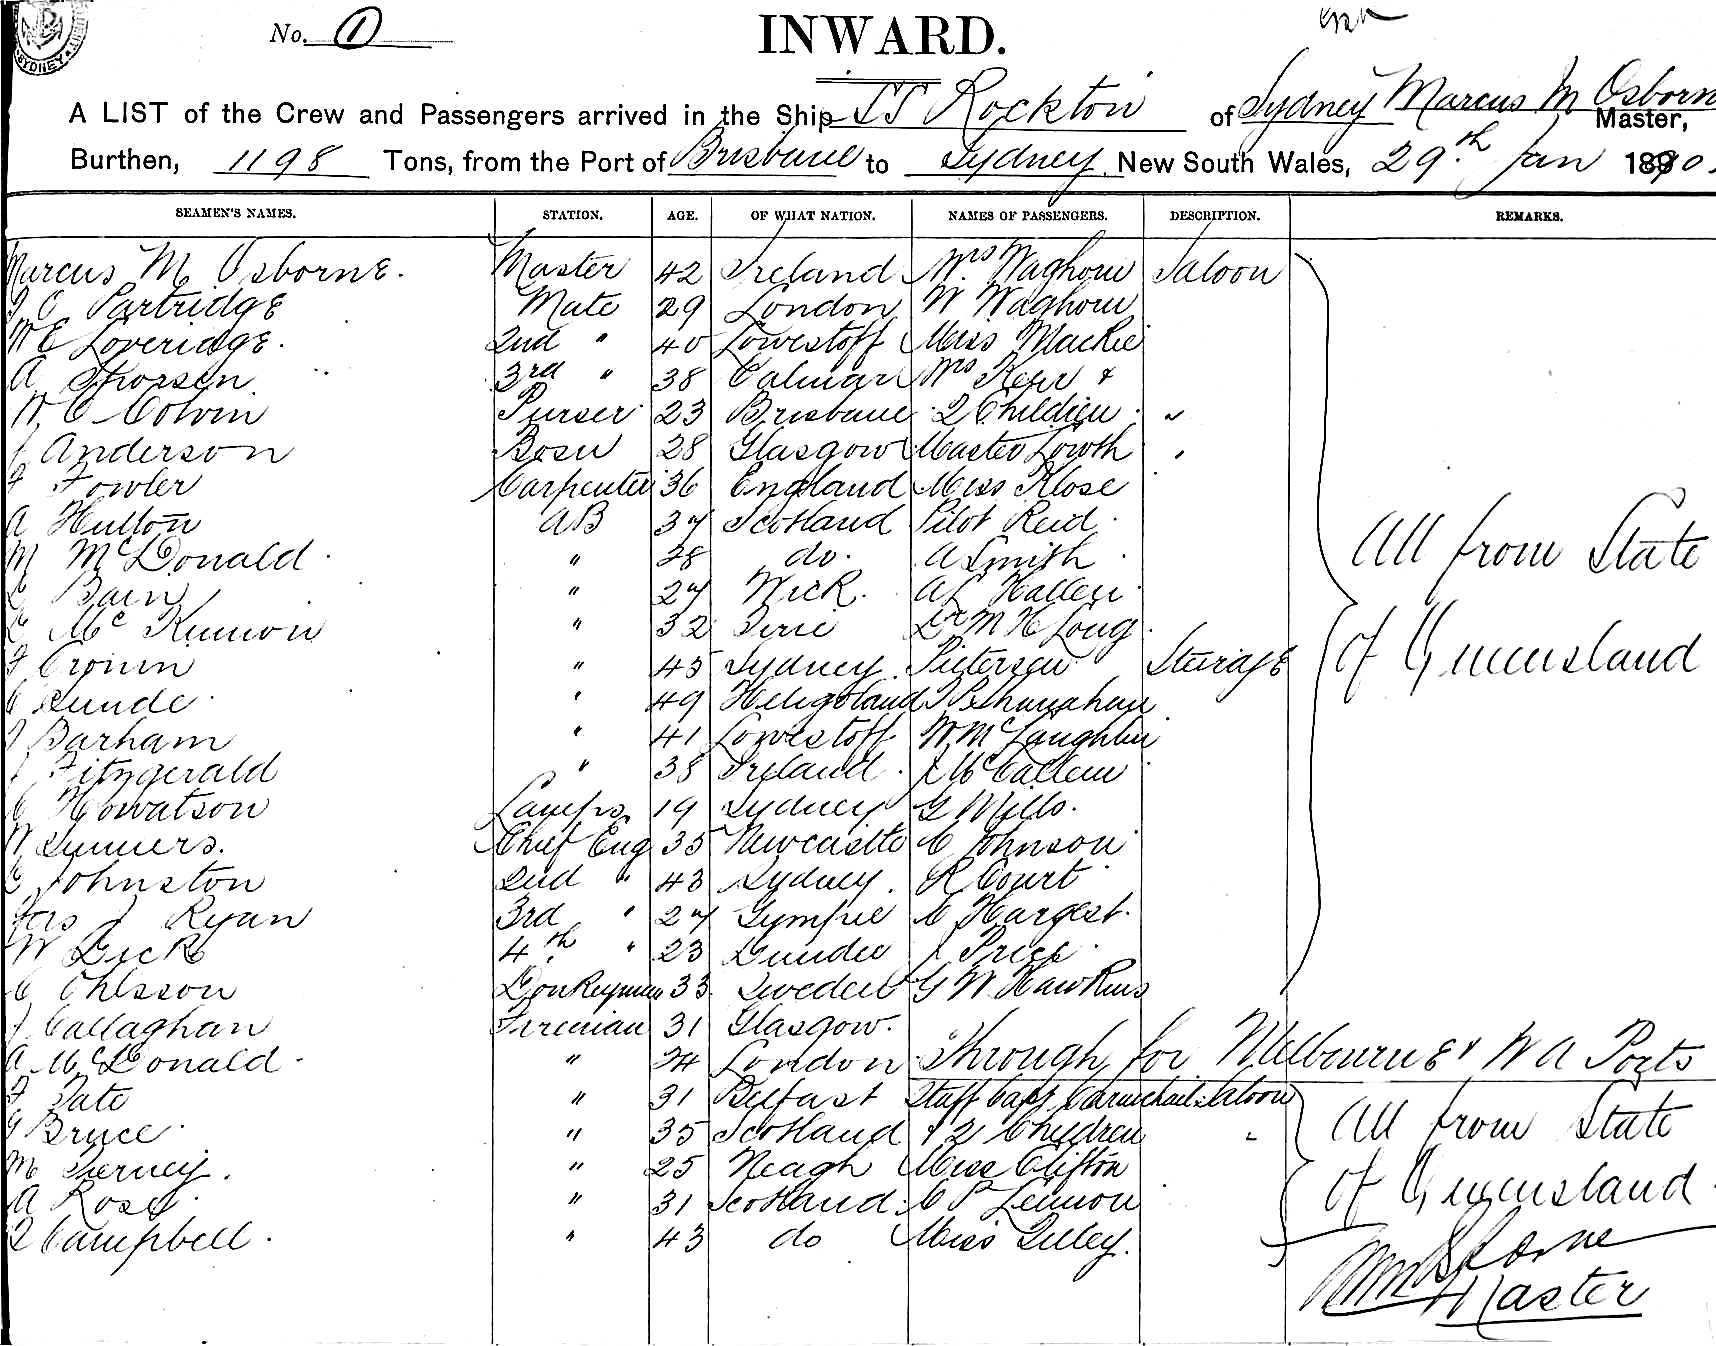 SYDNEY
No. 1
INWARD.
A LIST of the Crew and Passengers arrived in the Ship SS Rockton of Sydney Marcus M Osborne Master,
Burthen, 1198 Tons, from the Port of Brisbane to Sydney New South Wales, 29th Jan 1890.
SEAMEN'S NAMES. STATION. AGE. OF WHAT NATION. NAMES OF PASSENGERS. DESCRIPTION. REMARKS.
Marcus M Osborne. Master 42 Ireland Mrs Waghorn Saloon
Partridge Mate 29 London W Waghorn
W E Loveridge. 2nd " 40 Lowestoff Miss Mackie
A Thorsen 3rd " 38 Calmar Mrs Kerr &
W. C Colvin Purser 23 Brisbane 2 Children "
Anderson Bosn 28 Glasgow Master Lowth "
Fowler Carpenter 36 England Miss Klose
A Hutton AB 37 Scotland Pilot Reid
M McDonald " 28 do. A Smith
Bain " 27 Wick. A L Hallen
McKinnon " 32 Tiree Dr M H Long
Cronin " 45 Sydney Pietersen Steerage
" 49 Heligoland Shanahan
J Barham " 41 Lowestoff W McLaughlin
Fitzgerald " 38 Ireland. J McCallum
Howatson Lamps 19 Sydney G Mills.
W Summers. Chief Eng 35 Newcastle C Johnson
Johnston 2nd " 43 Sydney. R Court
Jas J Ryan 3rd " 27 Gympie C Hargest.
W Dick 4th " 23 Dundee J Price
C Ohlsson Donkeyman 33 Sweden G W Hawkins
J Callaghan Fireman 31 Glasgow.
All from State
of Queensland
A McDonald " 24 London Through for Melbourne & W A Ports
Tate " 31 Belfast Staff Capt Carmichael Saloon
Bruce " 35 Scotland & 2 Children "
M Tierney. " 25 Neagh Miss Clifton
A Ross " 31 Scotland C P Lennon
Campbell. " 43 do Miss Gilley.
All from State
of Queensland.
M M Osborne
Master